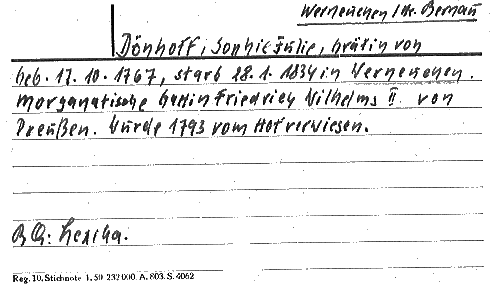 Werneuchen / Kr. Bernau
Dönhoff, Sophie Julie, Gräfin von
geb. 17. 10. 1767, starb 28. 1. 1834 in Werneuchen.
Morganatische Gattin Friedrich Wilhelms II. von
Preußen. Wurde 1793 vom Hof verwiesen.
BQ:
Reg. 10. Stichnote 1. 50 232000. A. 803. S. 4062